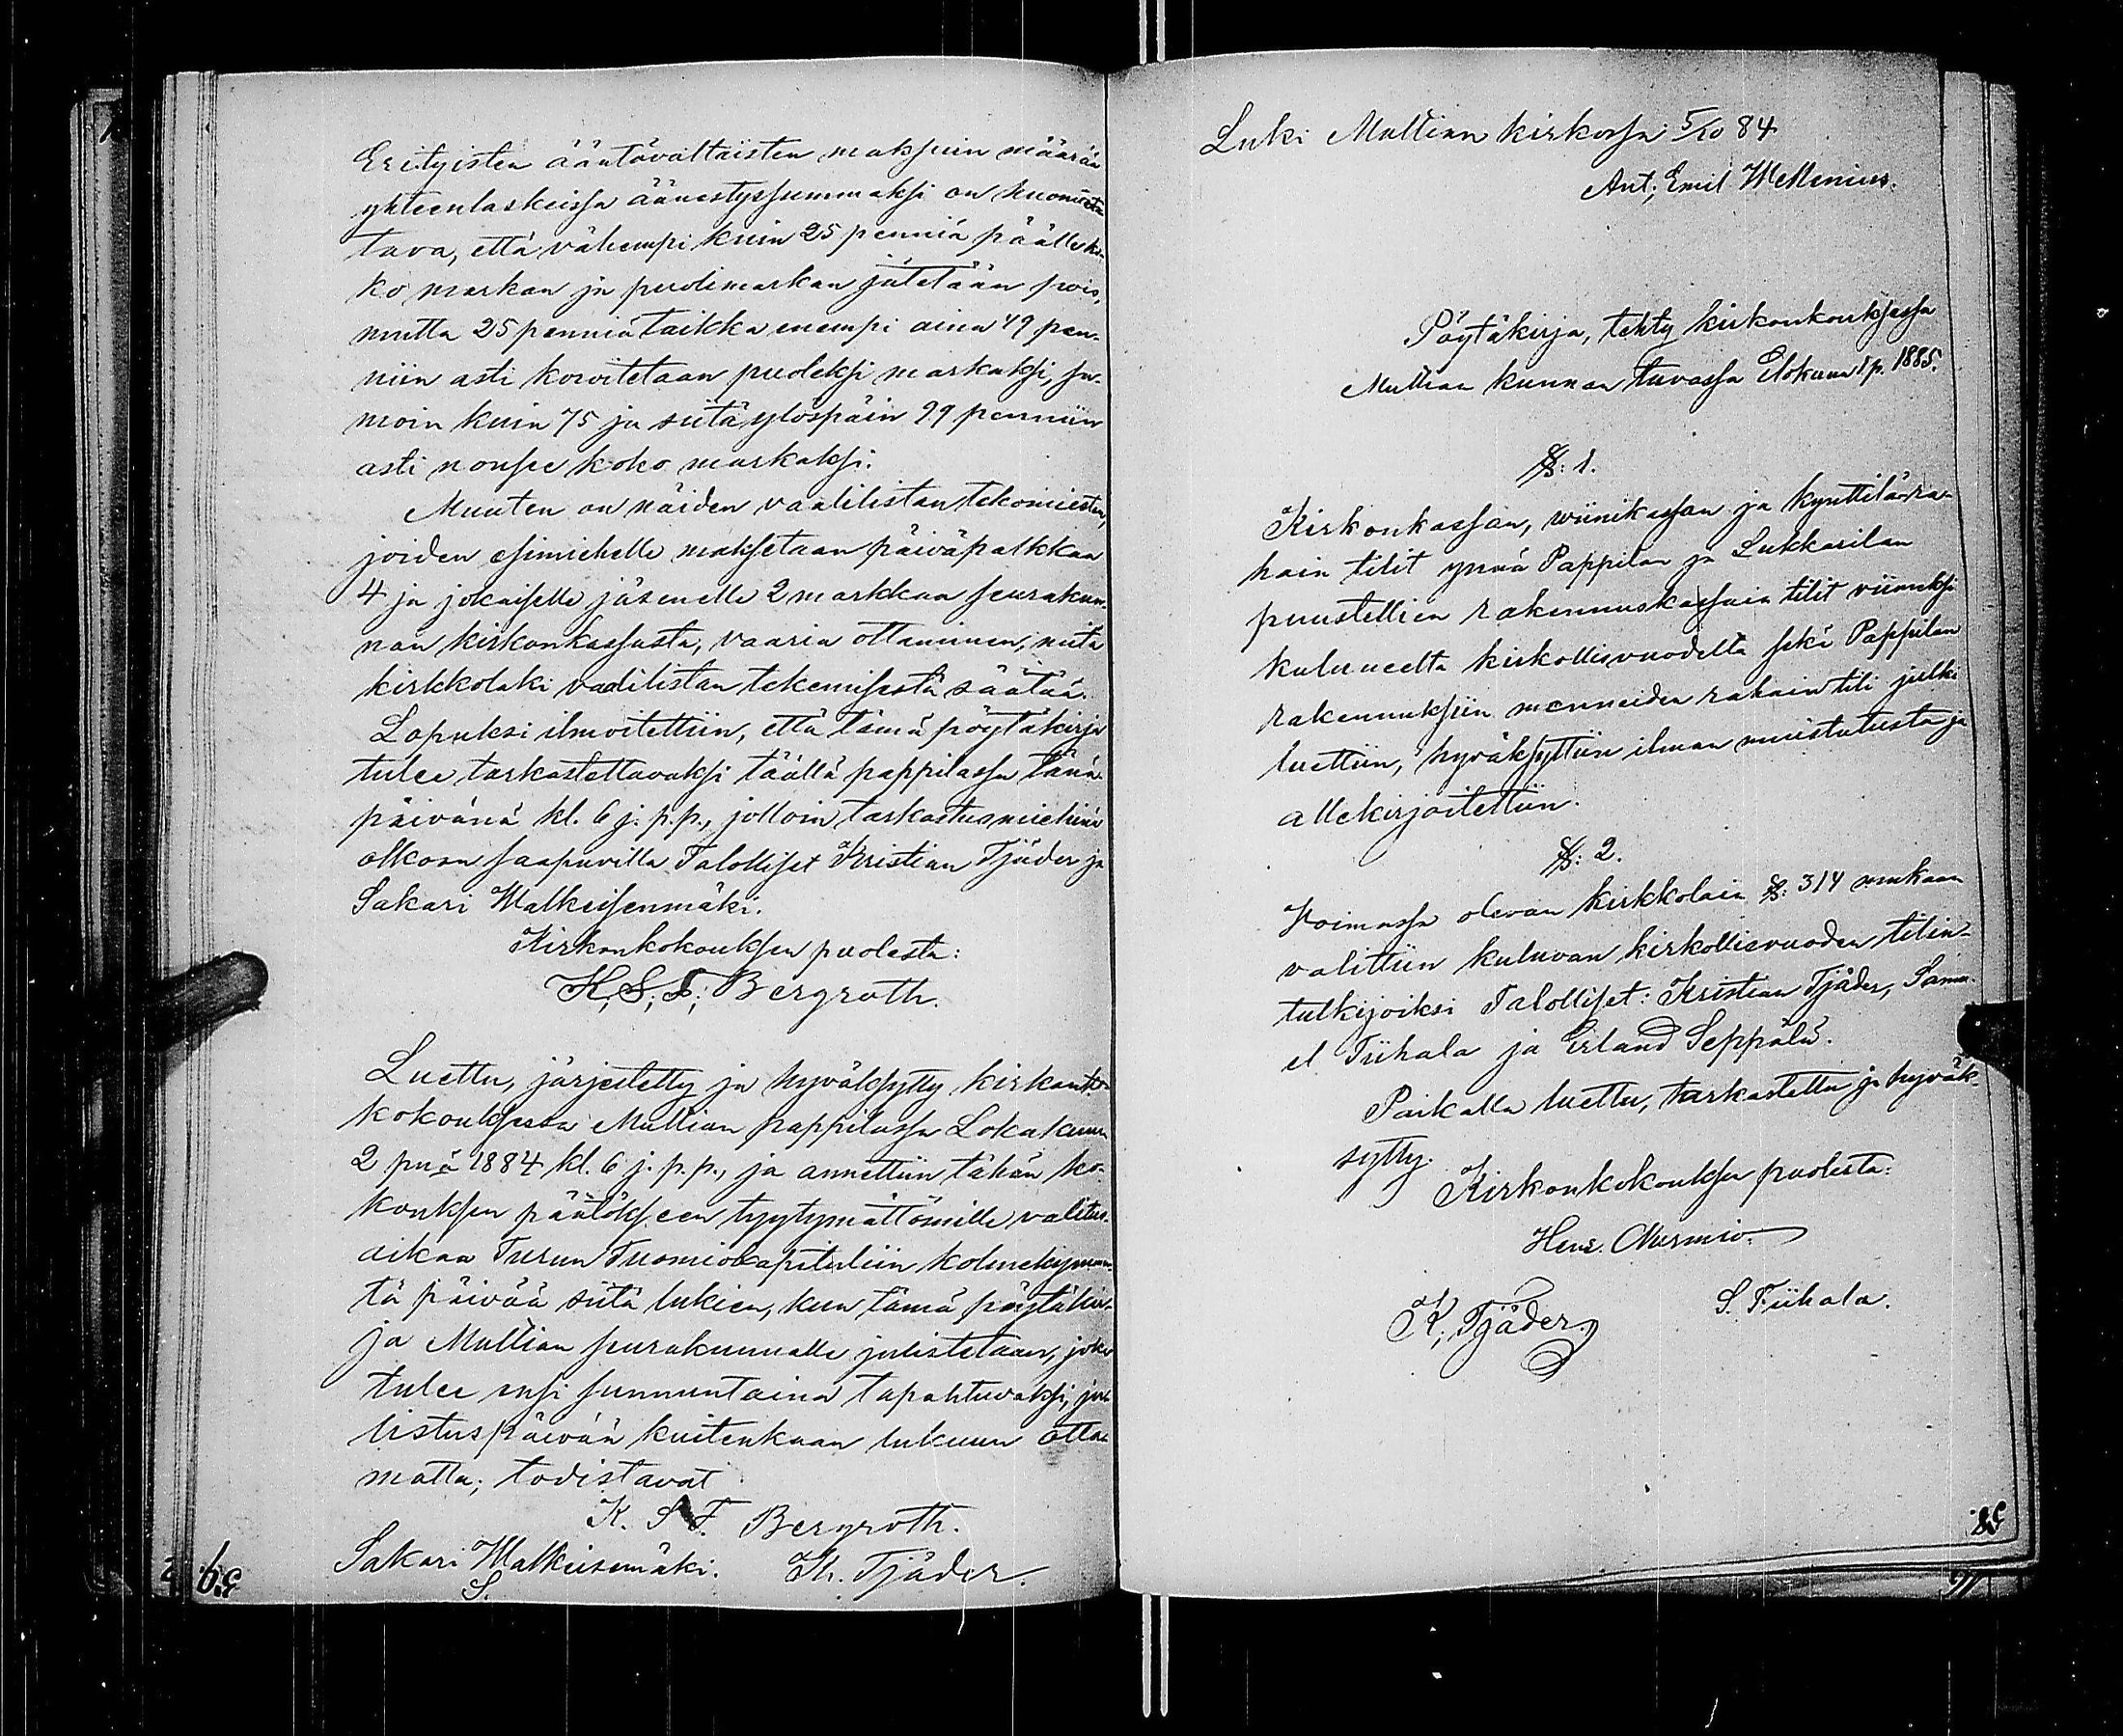 Erityisten ääntövaltaisten maksuin määrän
yhteenlaskeissa äänestyssummaksi on huomat-
tava, että vähempi kuin 25 penniä päälle ko-
ko markan ja puolimarkan jätetään pois,
mutta 25 penniä taikka enempi aina 49 pen-
niin asti korvitetaan puoleksi markaksi, sa-
moin kuin 75 ja siitä ylöspäin 99 penniin
asti nousee koko markaksi.
Muuten on näiden vaalilistan tekomiesten,
joiden esimiehelle maksetaan päiväpalkkaa
4 ja jokaiselle jäsenelle 2 markkaa seurakun-
nan kirkonkassasta, vaaria ottaminen, mitä
kirkkolaki vaalilistan tekemisestä säätää.
Lopuksi ilmoitettiin, että tämä pöytäkirja
tulee tarkastettavaksi täällä pappilassa tänä
päivänä kl. 6 j. p. p., jolloin tarkastusmiehinä
olkoon saapuvilla Talolliset Kristian Tjäder ja
Sakari Walkeisenmäki.
Kirkonkokouksen puolesta:
K; S; F; Bergroth.
Luettu, järjestetty ja hyväksytty kirkon-
kokouksessa Multian pappilassa Lokakuun
2 pnä 1884 kl. 6 j. p. p., ja annettiin tähän ko-
kouksen päätökseen tyytymättömille valitus-
aikaa Turun Tuomiokapituliin kolmekymmen-
tä päivää siitä lukien, kun tämä pöytäkir-
ja Multian seurakunnalle julistetaan, joka
tulee ensi sunnuntaina tapahtuvaksi, ju-
listuspäivän kuitenkaan lukuun otta-
matta; todistavat
K. S. F. Bergroth.
Sakari Walkeisemäki. Kr. Tjäder.
S.
59
Luki Multian kirkossa 5/10 84
Ant; Emil Wellenius.
Pöytäkirja, tehty kirkonkouksessa
Multian kunnan tuvassa Elokuun 1 p. 1885.
§: 1.
Kirkonkassan, wiinikassan ja kynttilära-
hain tilit ynnä Pappilan ja Lukkarilan
puustellien rakennuskassain tilit viimeksi
kuluneelta kirkollisvuodelta sekä Pappilan
rakennuksiin menneiden rahain tili julki
luettiin, hyväksyttiin ilman muistutusta ja
allekirjoitettiin.
§: 2.
Voimassa olevan kirkkolain §: 314 mukaan
valittiin kuluvan kirkollisvuoden tilin-
tutkijoiksi Talolliset: Kristian Tjäder, Samu-
el Tiihala ja Erland Seppälä.
Paikalla luettu, tarkastettu ja hyväk-
sytty.
Kirkonkokouksen puolesta:
Henr. Nurmio.
K; Tjäder. S. Tiihala.
58